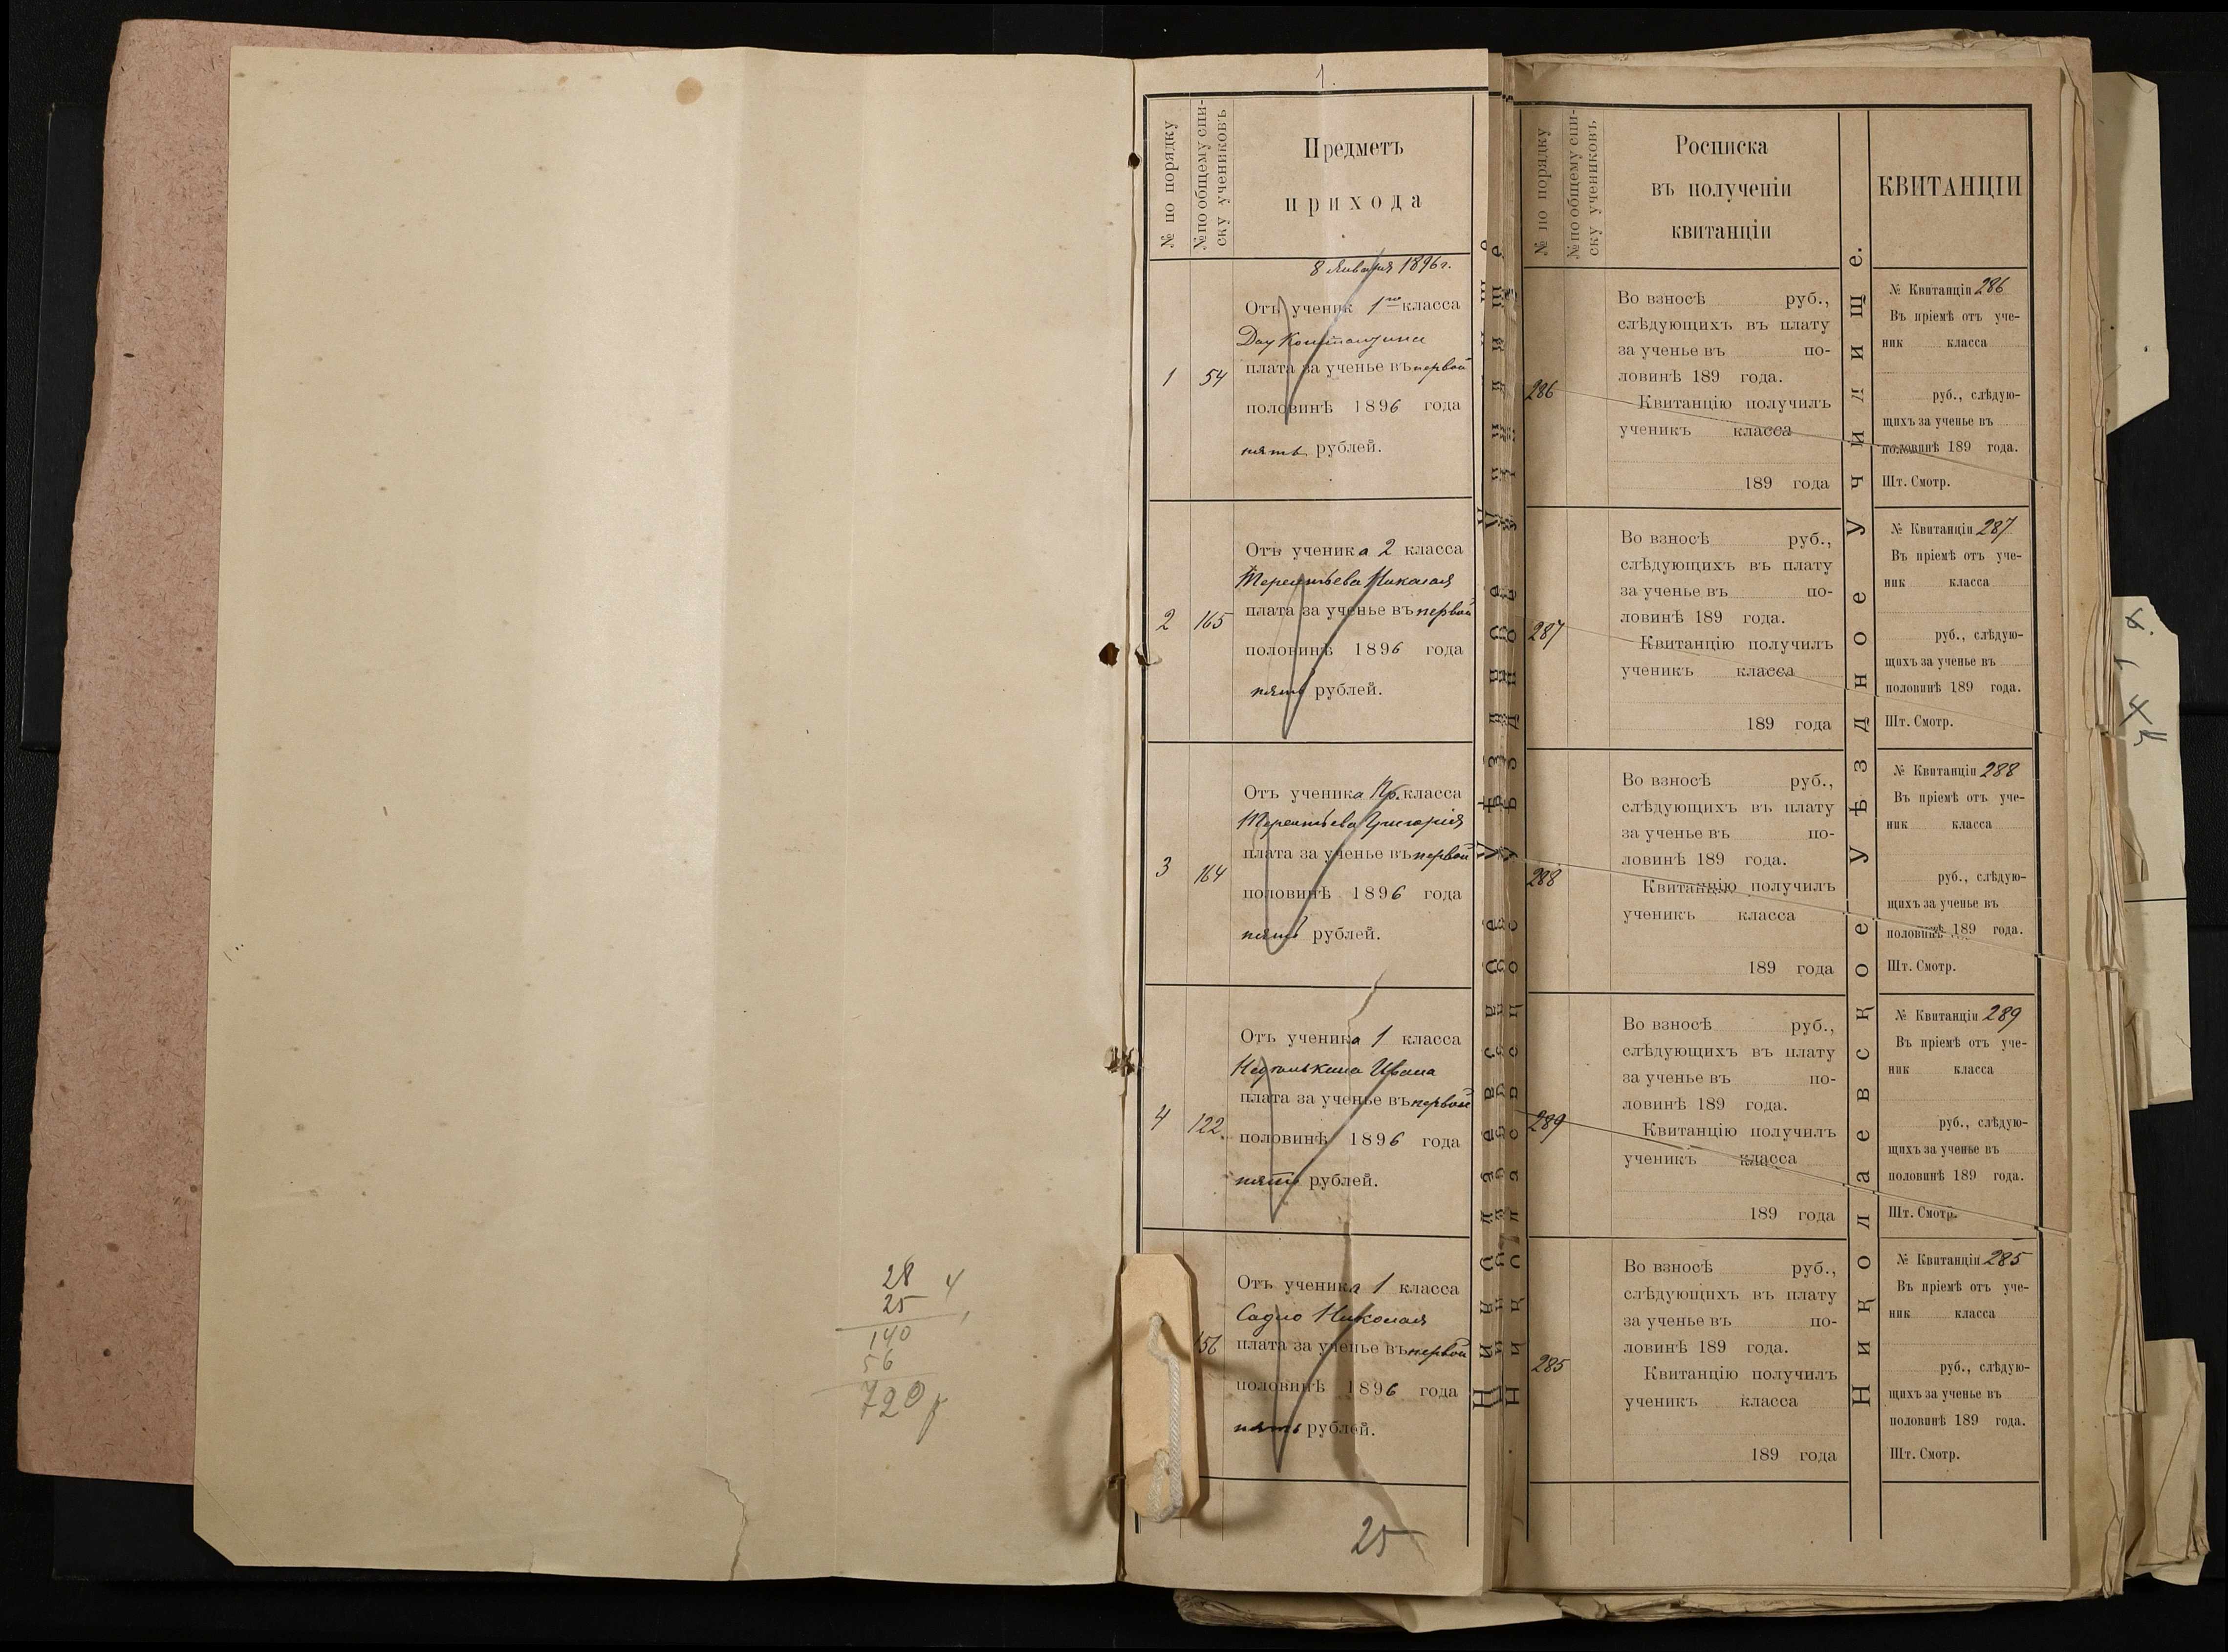 28 4
25
140
56
720 р
1.
№ по порядку
№ по общему спи-
ску учениковъ
Предметъ
прихода
8 Января 1896 г.
1
54
Отъ ученик 1го класса
плата за ученье въ первой
половинѣ 1896 года
пять рублей.
2
165
Отъ ученика 2 класса
Терентьева Николая
плата за ученье въ первой
половинѣ 1896 года
пять рублей.
3
164
Отъ ученика Пр. класса
Терентьева Григорія
плата за ученье въ первой
половинѣ 1896 года
пять рублей.
4
122.
Отъ ученика 1 класса
Ивана
плата за ученье въ первой
половинѣ 1896 года
пять рублей.
156
Отъ ученика 1 класса
Садло Николая
плата за ученье въ первой
половинѣ 1896 года
пять рублей.
25
№ по порядку
№ по общему спи-
ску учениковъ
Росписка
въ полученіи
квитанціи
286
Во взносѣ руб.,
слѣдующихъ въ плату
за ученье въ по-
ловинѣ 189 года.
Квитанцію получилъ
ученикъ класса
189 года
287
Во взносѣ руб.,
слѣдующихъ въ плату
за ученье въ по-
ловинѣ 189 года.
Квитанцію получилъ
ученикъ класса
189 года
288
Во взносѣ руб.,
слѣдующихъ въ плату
за ученье въ по-
ловинѣ 189 года.
Квитанцію получилъ
ученикъ класса
189 года
289
Во взносѣ руб.,
слѣдующихъ въ плату
за ученье въ по-
ловинѣ 189 года.
Квитанцію получилъ
ученикъ класса
189 года
285
Во взносѣ руб.,
слѣдующихъ въ плату
за ученье въ по-
ловинѣ 189 года.
Квитанцію получилъ
ученикъ класса
189 года
Николаевское Уѣздное Училище.
КВИТАНЦІИ
№ Квитанціи 286
Въ пріемѣ отъ уче-
ник класса
руб., слѣдую-
щихъ за ученье въ
половинѣ 189 года.
Шт. Смотр.
№ Квитанціи 287
Въ пріемѣ отъ уче-
ник класса
руб., слѣдую-
щихъ за ученье въ
половинѣ 189 года.
Шт. Смотр.
№ Квитанціи 288
Въ пріемѣ отъ уче-
ник класса
руб., слѣдую-
щихъ за ученье въ
половинѣ 189 года.
Шт. Смотр.
№ Квитанціи 289
Въ пріемѣ отъ уче-
ник класса
руб., слѣдую-
щихъ за ученье въ
половинѣ 189 года.
Шт. Смотр.
№ Квитанціи 285
Въ пріемѣ отъ уче-
ник класса
руб., слѣдую-
щихъ за ученье въ
половинѣ 189 года.
Шт. Смотр.